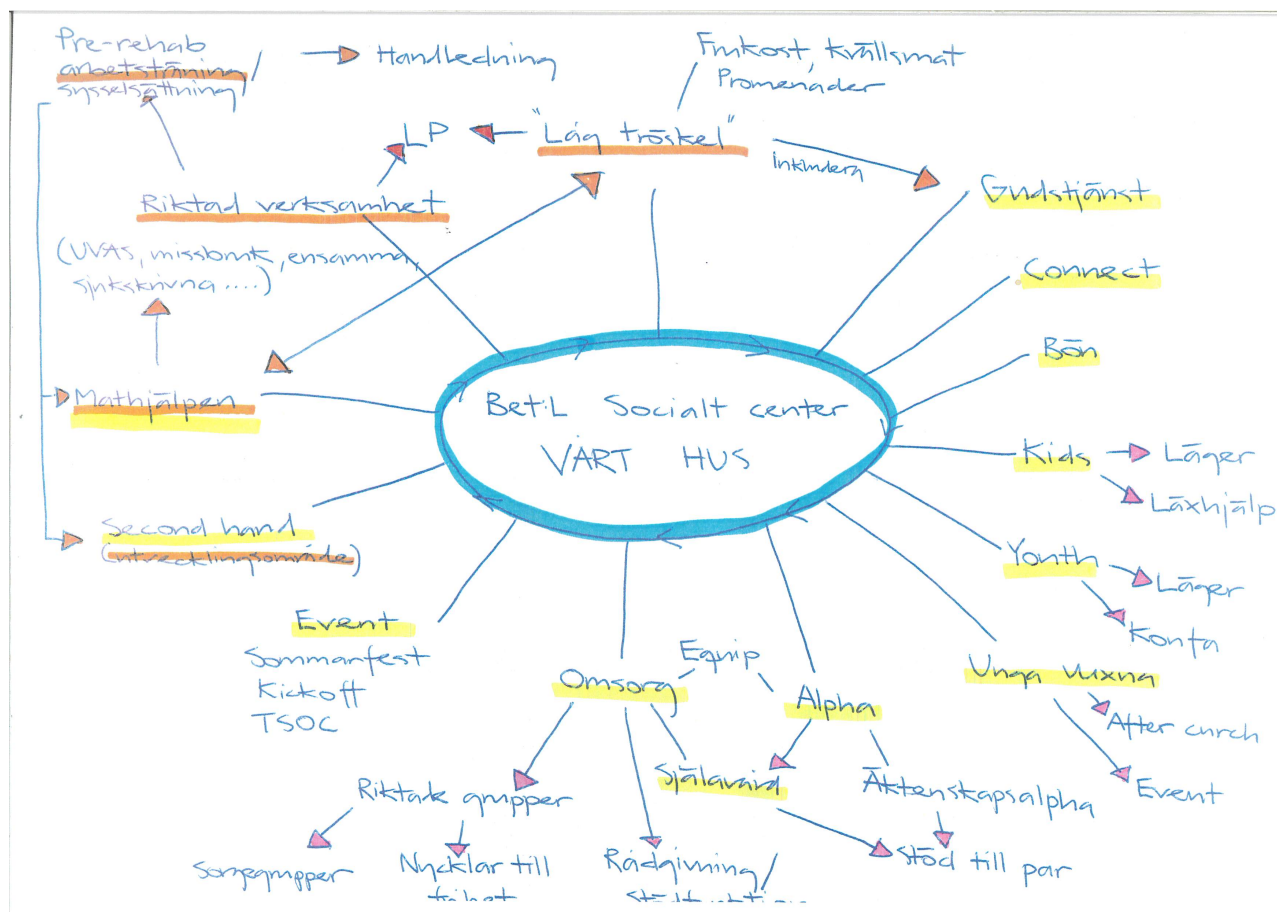 Pre-rehab
arbetsträning/
sysselsättning
Handledning
Frukost, kvällsmat
Promenader
LP
"Låg tröskel"
inkludera
Riktad verksamhet
(UVAS, missbruk, ensamma,
sjukskrivna ....)
Gudstjänst
Connect
Bön
Mathjälpen
Betil Socialt center
VÅRT HUS
Kids
Läger
Läxhjälp
Second hand
(utvecklingsområde)
Youth
Läger
Konfa
Event
Sommarfest
Kickoff
TSOC
Equip
Omsorg
Alpha
Unga vuxna
After curch
Event
Själavård
Äktenskapsalpha
Riktade grupper
Sorgegrupper
Nycklar till
frihet
Rådgivning/
Stöd till par